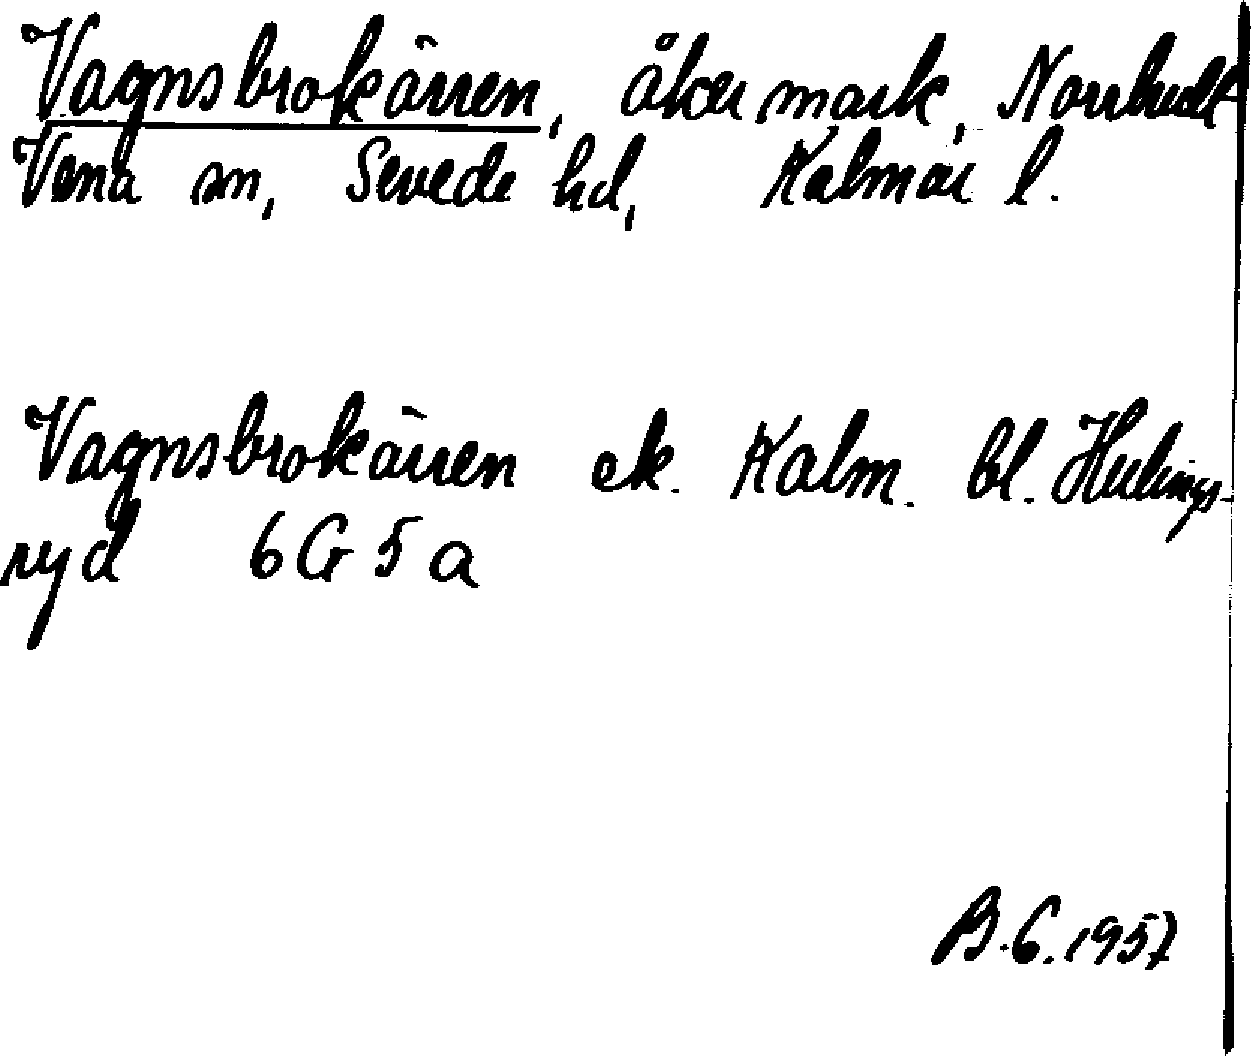 Vagnsbrokärren, åkermark, Norrhult
Vena sn, Sevede hd, Kalmar l.
Vagnsbrokärren ek. Kalm. bl. Hulings-
ryd 6G5a
B.G. 1957